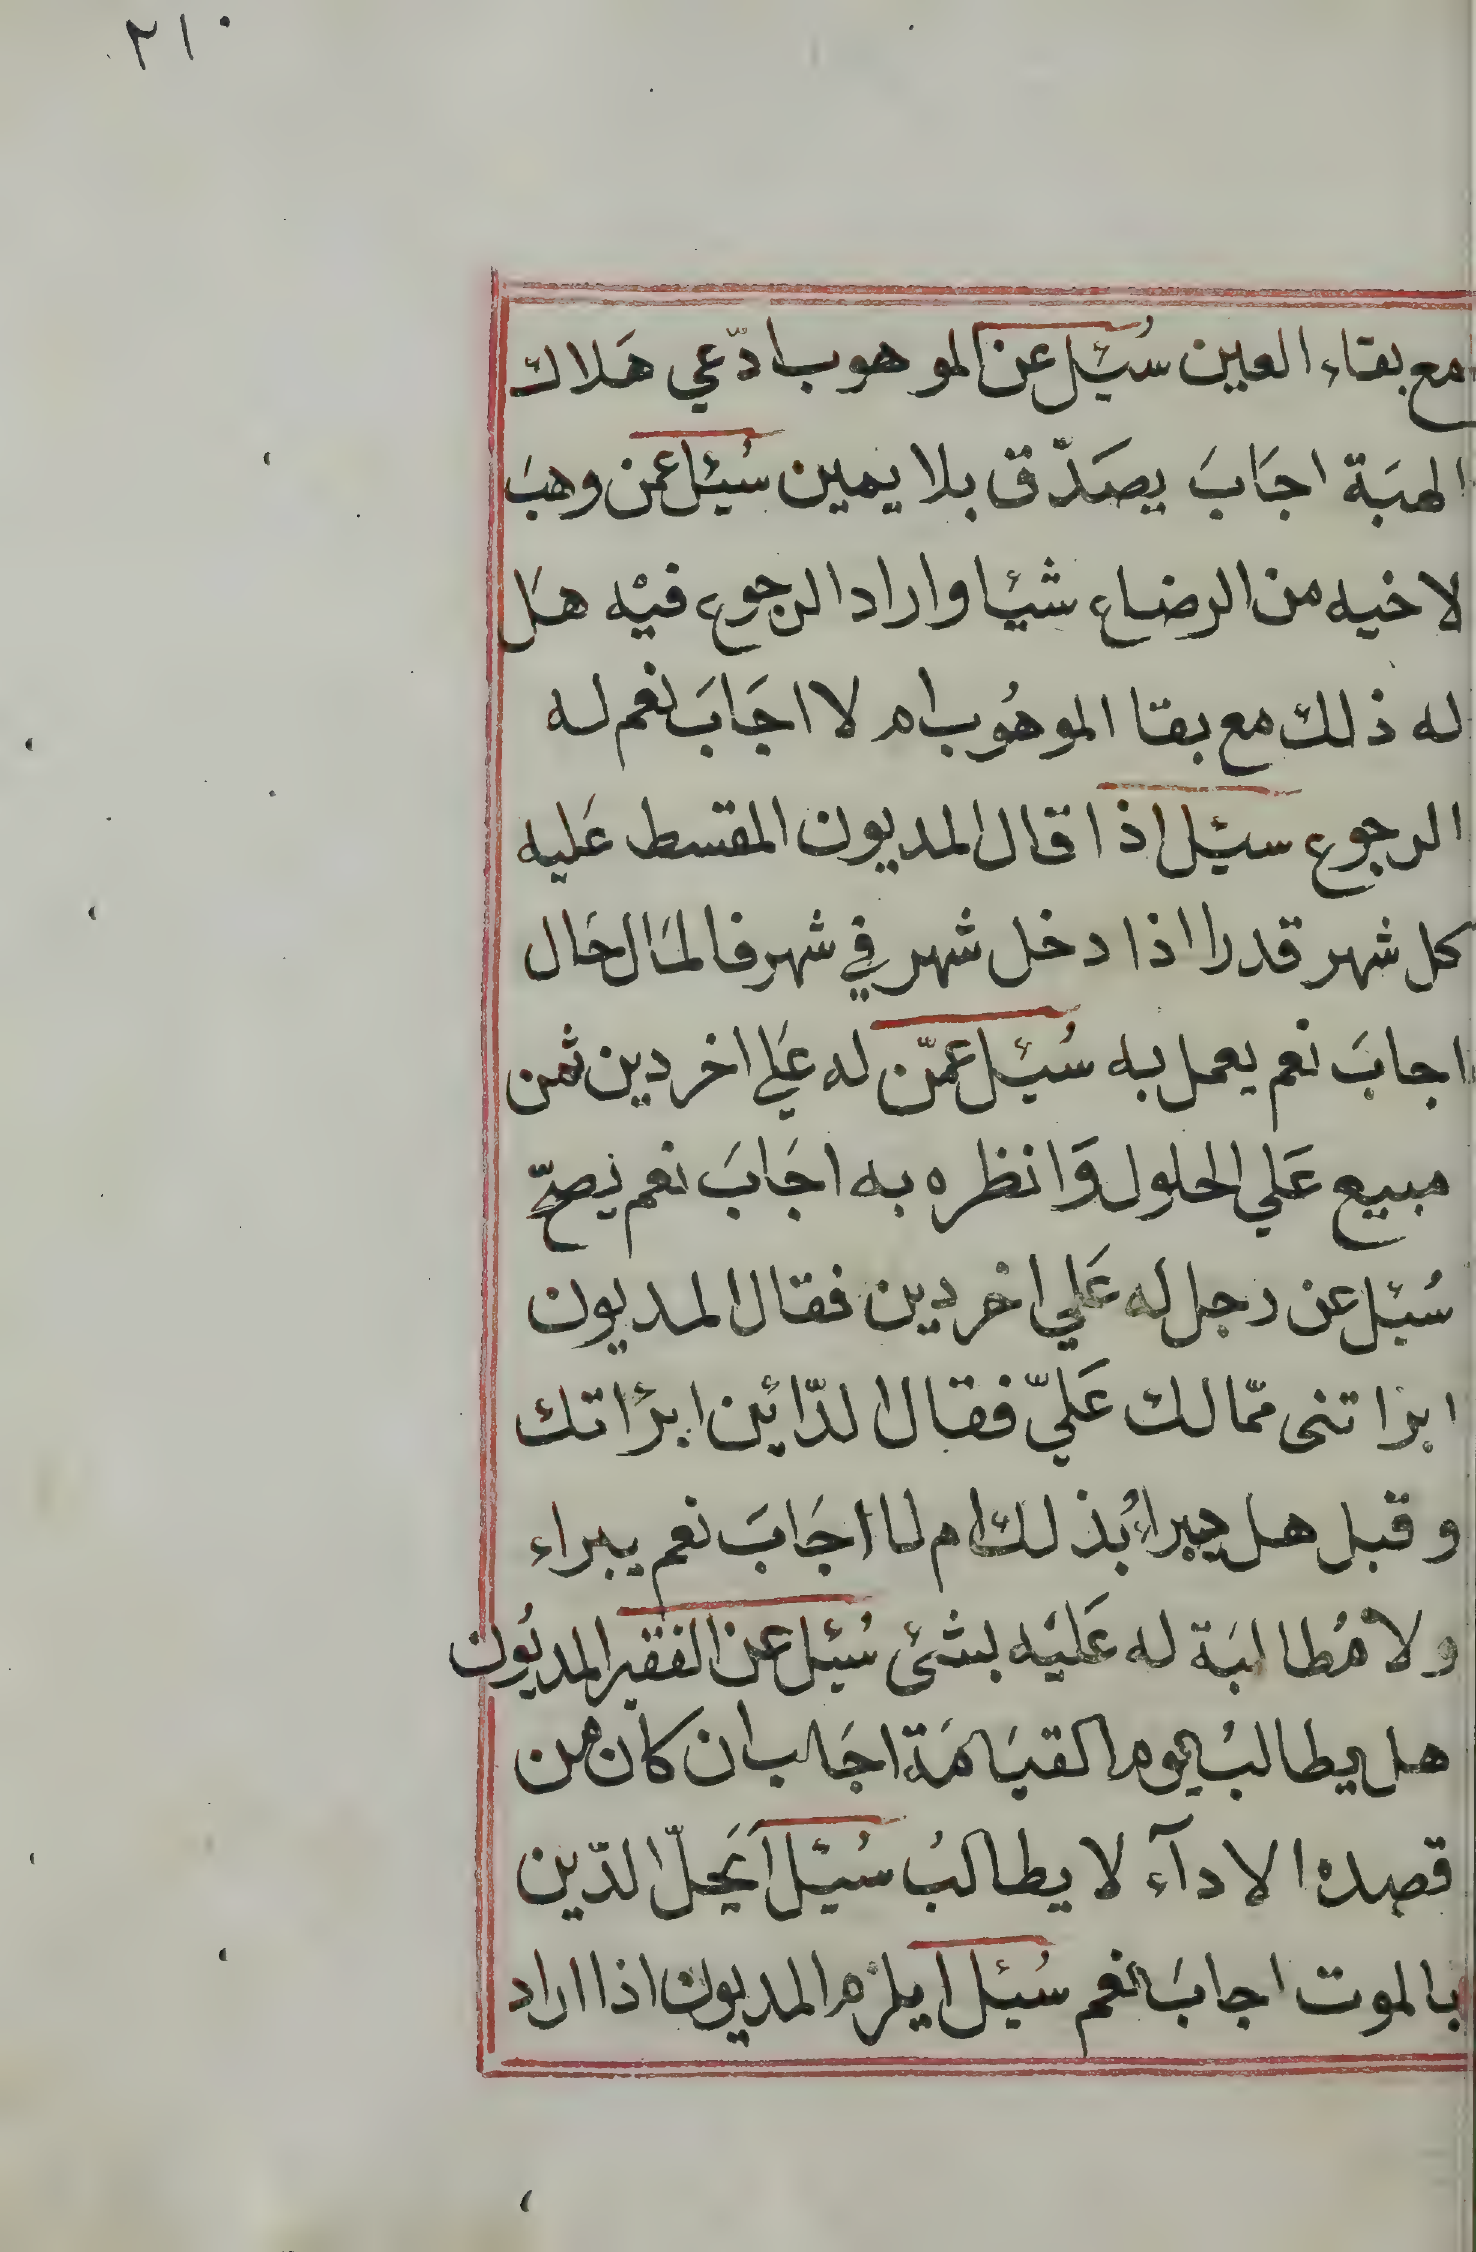 ٢١٠
مع بقاء العين سُئِل عن الموهوب ادّعي هَلاك
الهبَة اجَابَ يصَدّق بلا يمين سُئِل عمن وهبَ
لاخيه من الرضاع شيئا واراد الرجوع فيْه هَل
له ذلك مع بقا الموهُوب ام لا اجَابَ نعم له
الرجوع سئِل اذا قال المديون المقسط عَليه
كل شهر قدرا اذا دخل شهر في شهر فالمَال حَال
اجابَ نعم يعمل به سُئِل عمّن له عَلي اخر دين ثمن
مبيع عَلي الحلول وَانظره به اجَابَ نعم يصحّ
سُئِل عن رجل له عَلي اخر دين فقال المديون
ابراتنى ممّا لك عَليّ فقال الدّائين ابرْأتك
وقبل هل يبراءُ بذلك ام لا اجَابَ نعم يبراء
ولا مُطالبَة له عَليْه بشئ سُئِل عن الفقير المديُون
هل يطالبُ يوم القيَامَة اجَاب ان كان من
قصده الادآء لا يطالبُ سُئِل اَيَحلّ الدّين
بالموت اجابَ نعم سُئِل ايلزم المديون اذا اراد